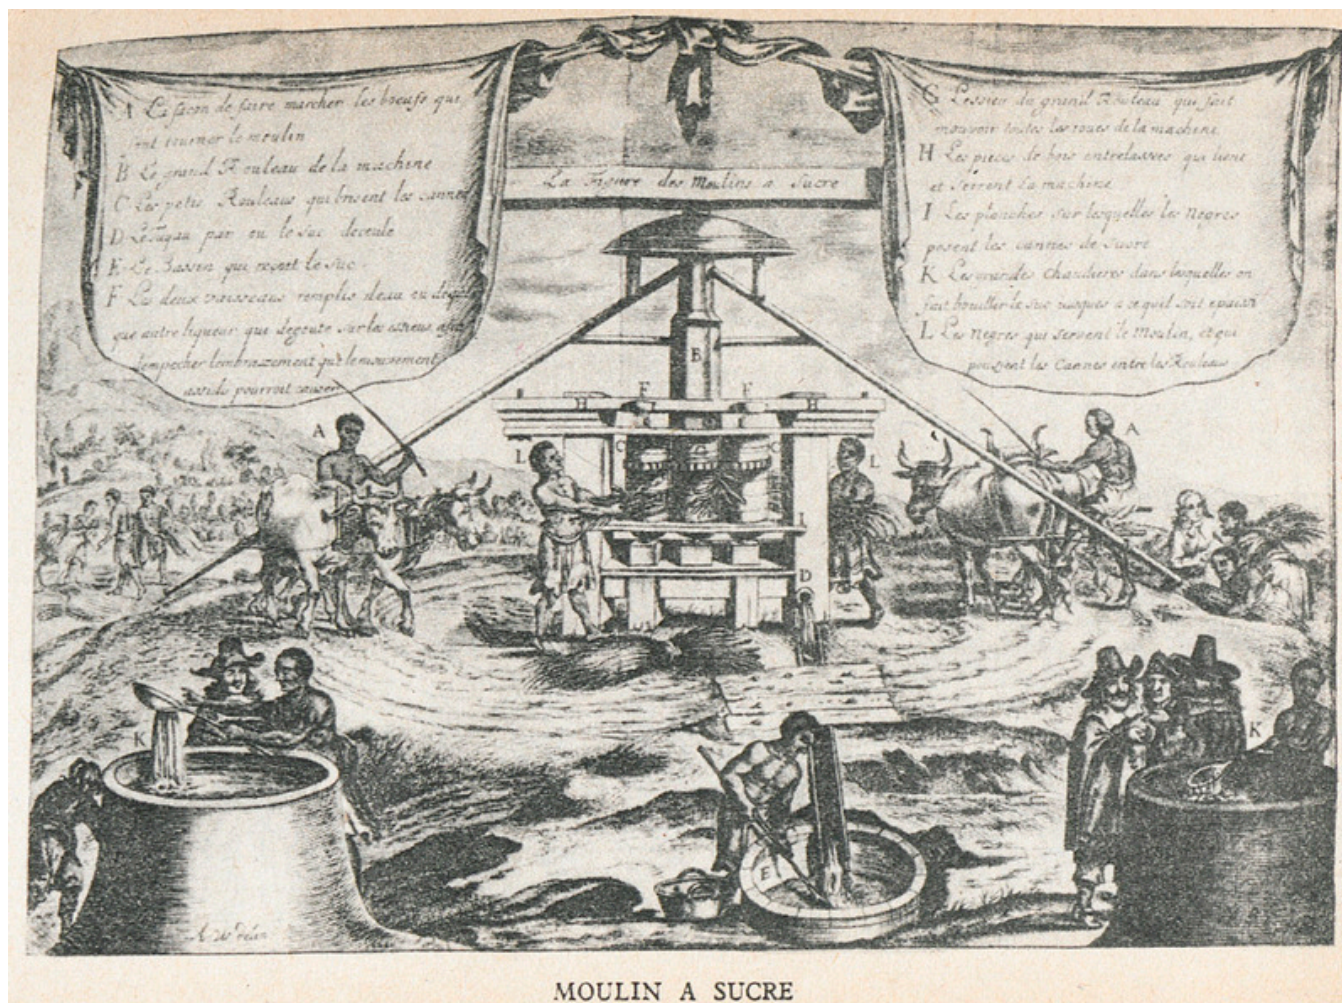 A La façon de faire marcher les bœufs qui
font tourner le moulin
B Le grand Rouleau de la machine
C Les petis Rouleaus qui brisent les cannes
D Le Tuyau par ou le suc decoule
E Le Bassin qui reçoit le suc
F Les deux vaisseaus remplis deau ou de
que autre liqueur que degoute sur les essieus afin
dempecher lembrazement que le mouvement
assidu pourroit causer
La Figure des Moulins a Sucre
G Lessieu du grand Rouleau qui fait
mouvoir toutes les roues de la machine
H Les pieces de bois entrelassees qui lient
et serrent la machine
I Les planches sur lesquelles les Negres
posent les cannes de sucre
K Les grandes chaudieres dans lesquelles on
fait bouillir le suc jusques a ce quil soit epaissi
L Les Negres qui servent le Moulin, et qui
poussent les Cannes entre les Rouleaus
B
F F
H H
A A
C C
L L
I
D
K K
E
MOULIN A SUCRE